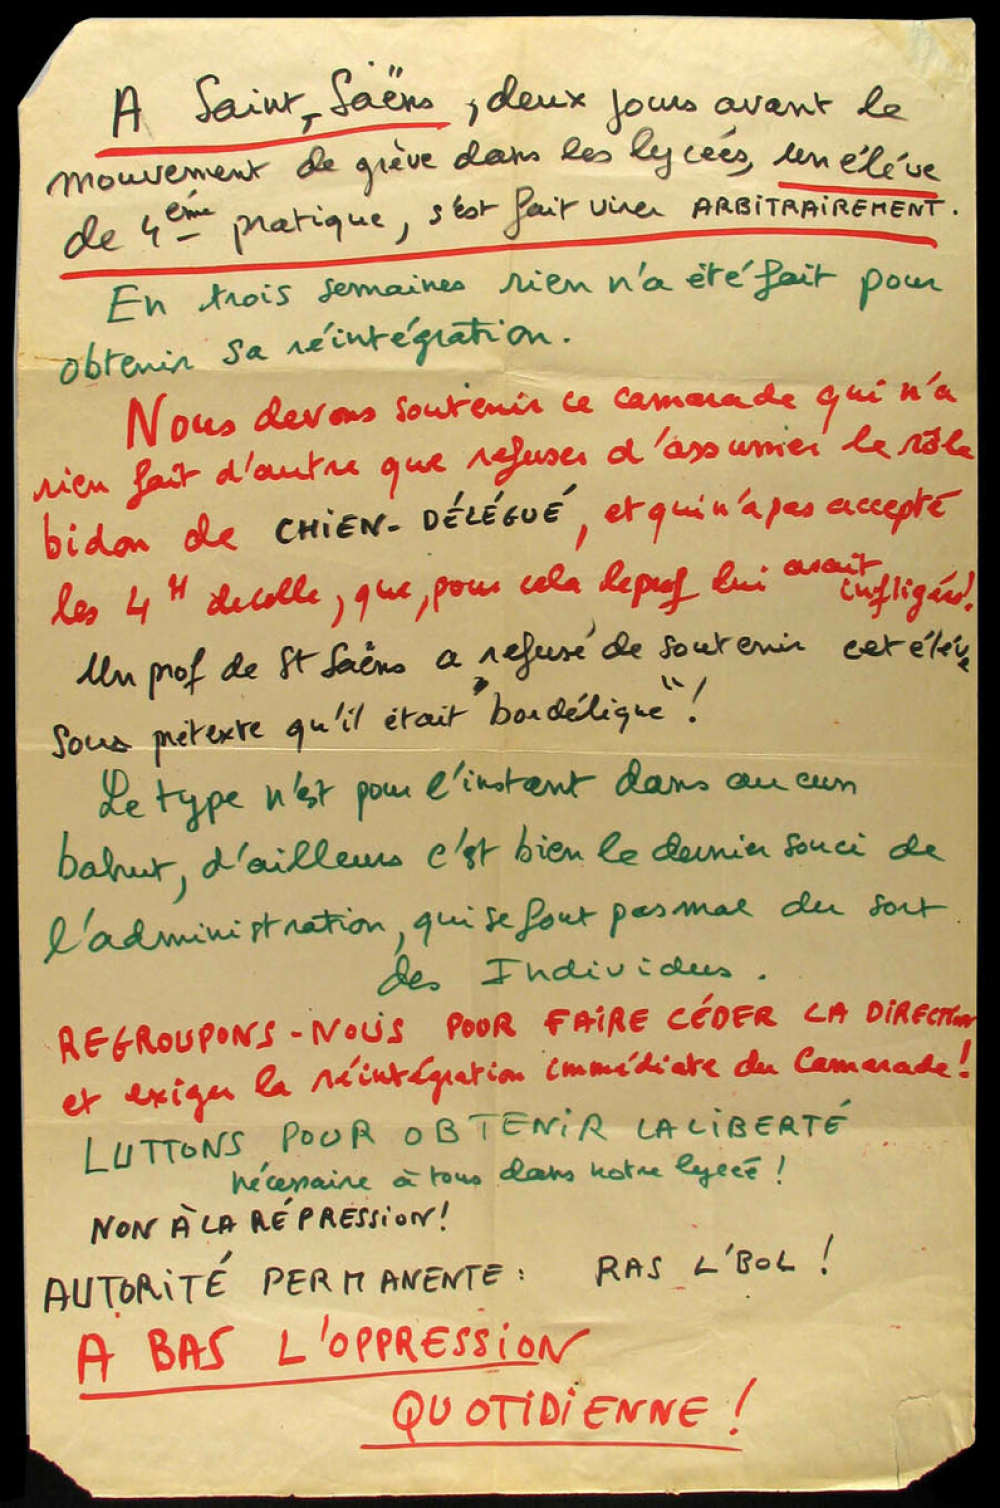 A Saint-Saëns, deux jours avant le
mouvement de grève dans les lycées, un élève
de 4ème pratique, s'est fait virer ARBITRAIREMENT.
En trois semaines rien n'a été fait pour
obtenir sa réintégration.
Nous devons soutenir ce camarade qui n'a
rien fait d'autre que refuser d'assumer le rôle
bidon de CHIEN-DÉLÉGUÉ, et qui n'a pas accepté
les 4H de colle, que, pour cela le prof lui avait
infligées!
Un prof de St Saëns a refusé de soutenir cet élève
sous prétexte qu'il était "bordélique"!
Le type n'est pour l'instant dans aucun
bahut, d'ailleurs c'est bien le dernier souci de
l'administration, qui se fout pas mal du sort
des Individus.
REGROUPONS-NOUS POUR FAIRE CÉDER LA DIRECTION
et exiger la réintégration immédiate du Camarade!
LUTTONS POUR OBTENIR LA LIBERTÉ
nécessaire à tous dans notre lycée!
NON À LA RÉPRESSION!
AUTORITÉ PERMANENTE: RAS L'BOL!
A BAS L'OPPRESSION
QUOTIDIENNE!